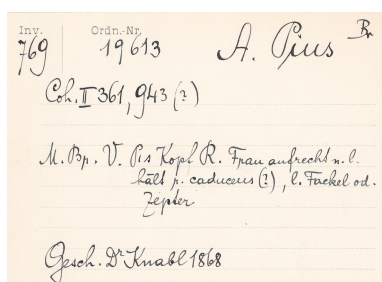 Inv. Ordn.-Nr. Br
769 19613 A. Pius
Coh. II 361, 943 (?)
M. Br. V. Pis Kopf R. Frau aufrecht n. l.
hält r. caduceus (?), l. Fackel od.
Zepter
Gesch. Dr Knabl 1868